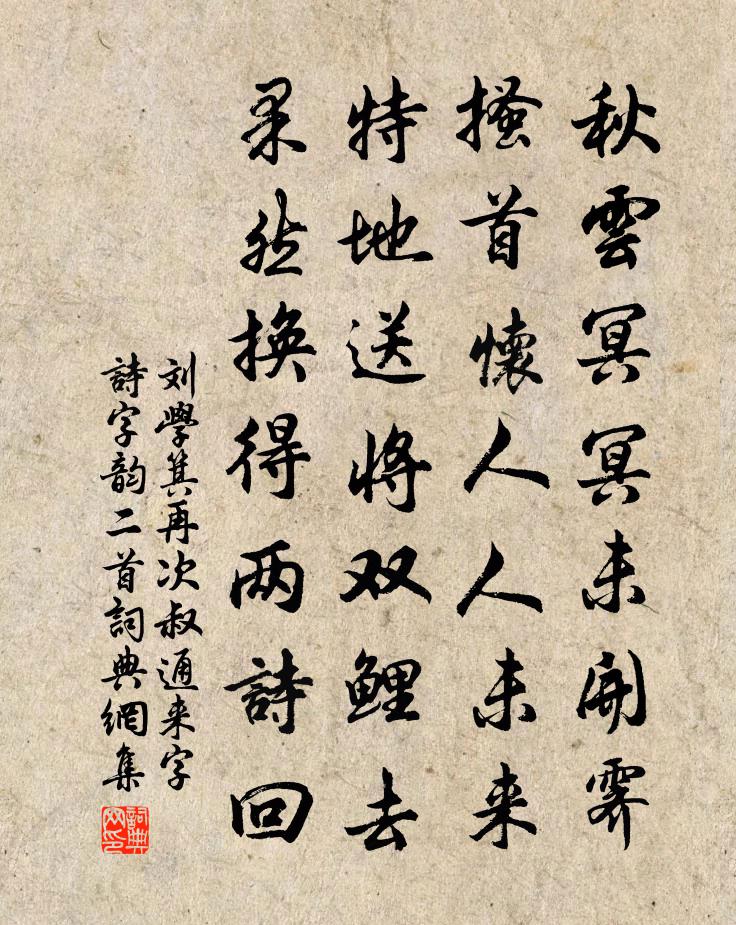 秋雲冥冥未開霽
搔首懷人人未来
特地送将双鲤去
果然換得两詩回
刘學箕再次叔通来字
詩字韵二首詞典網集
詞典网印